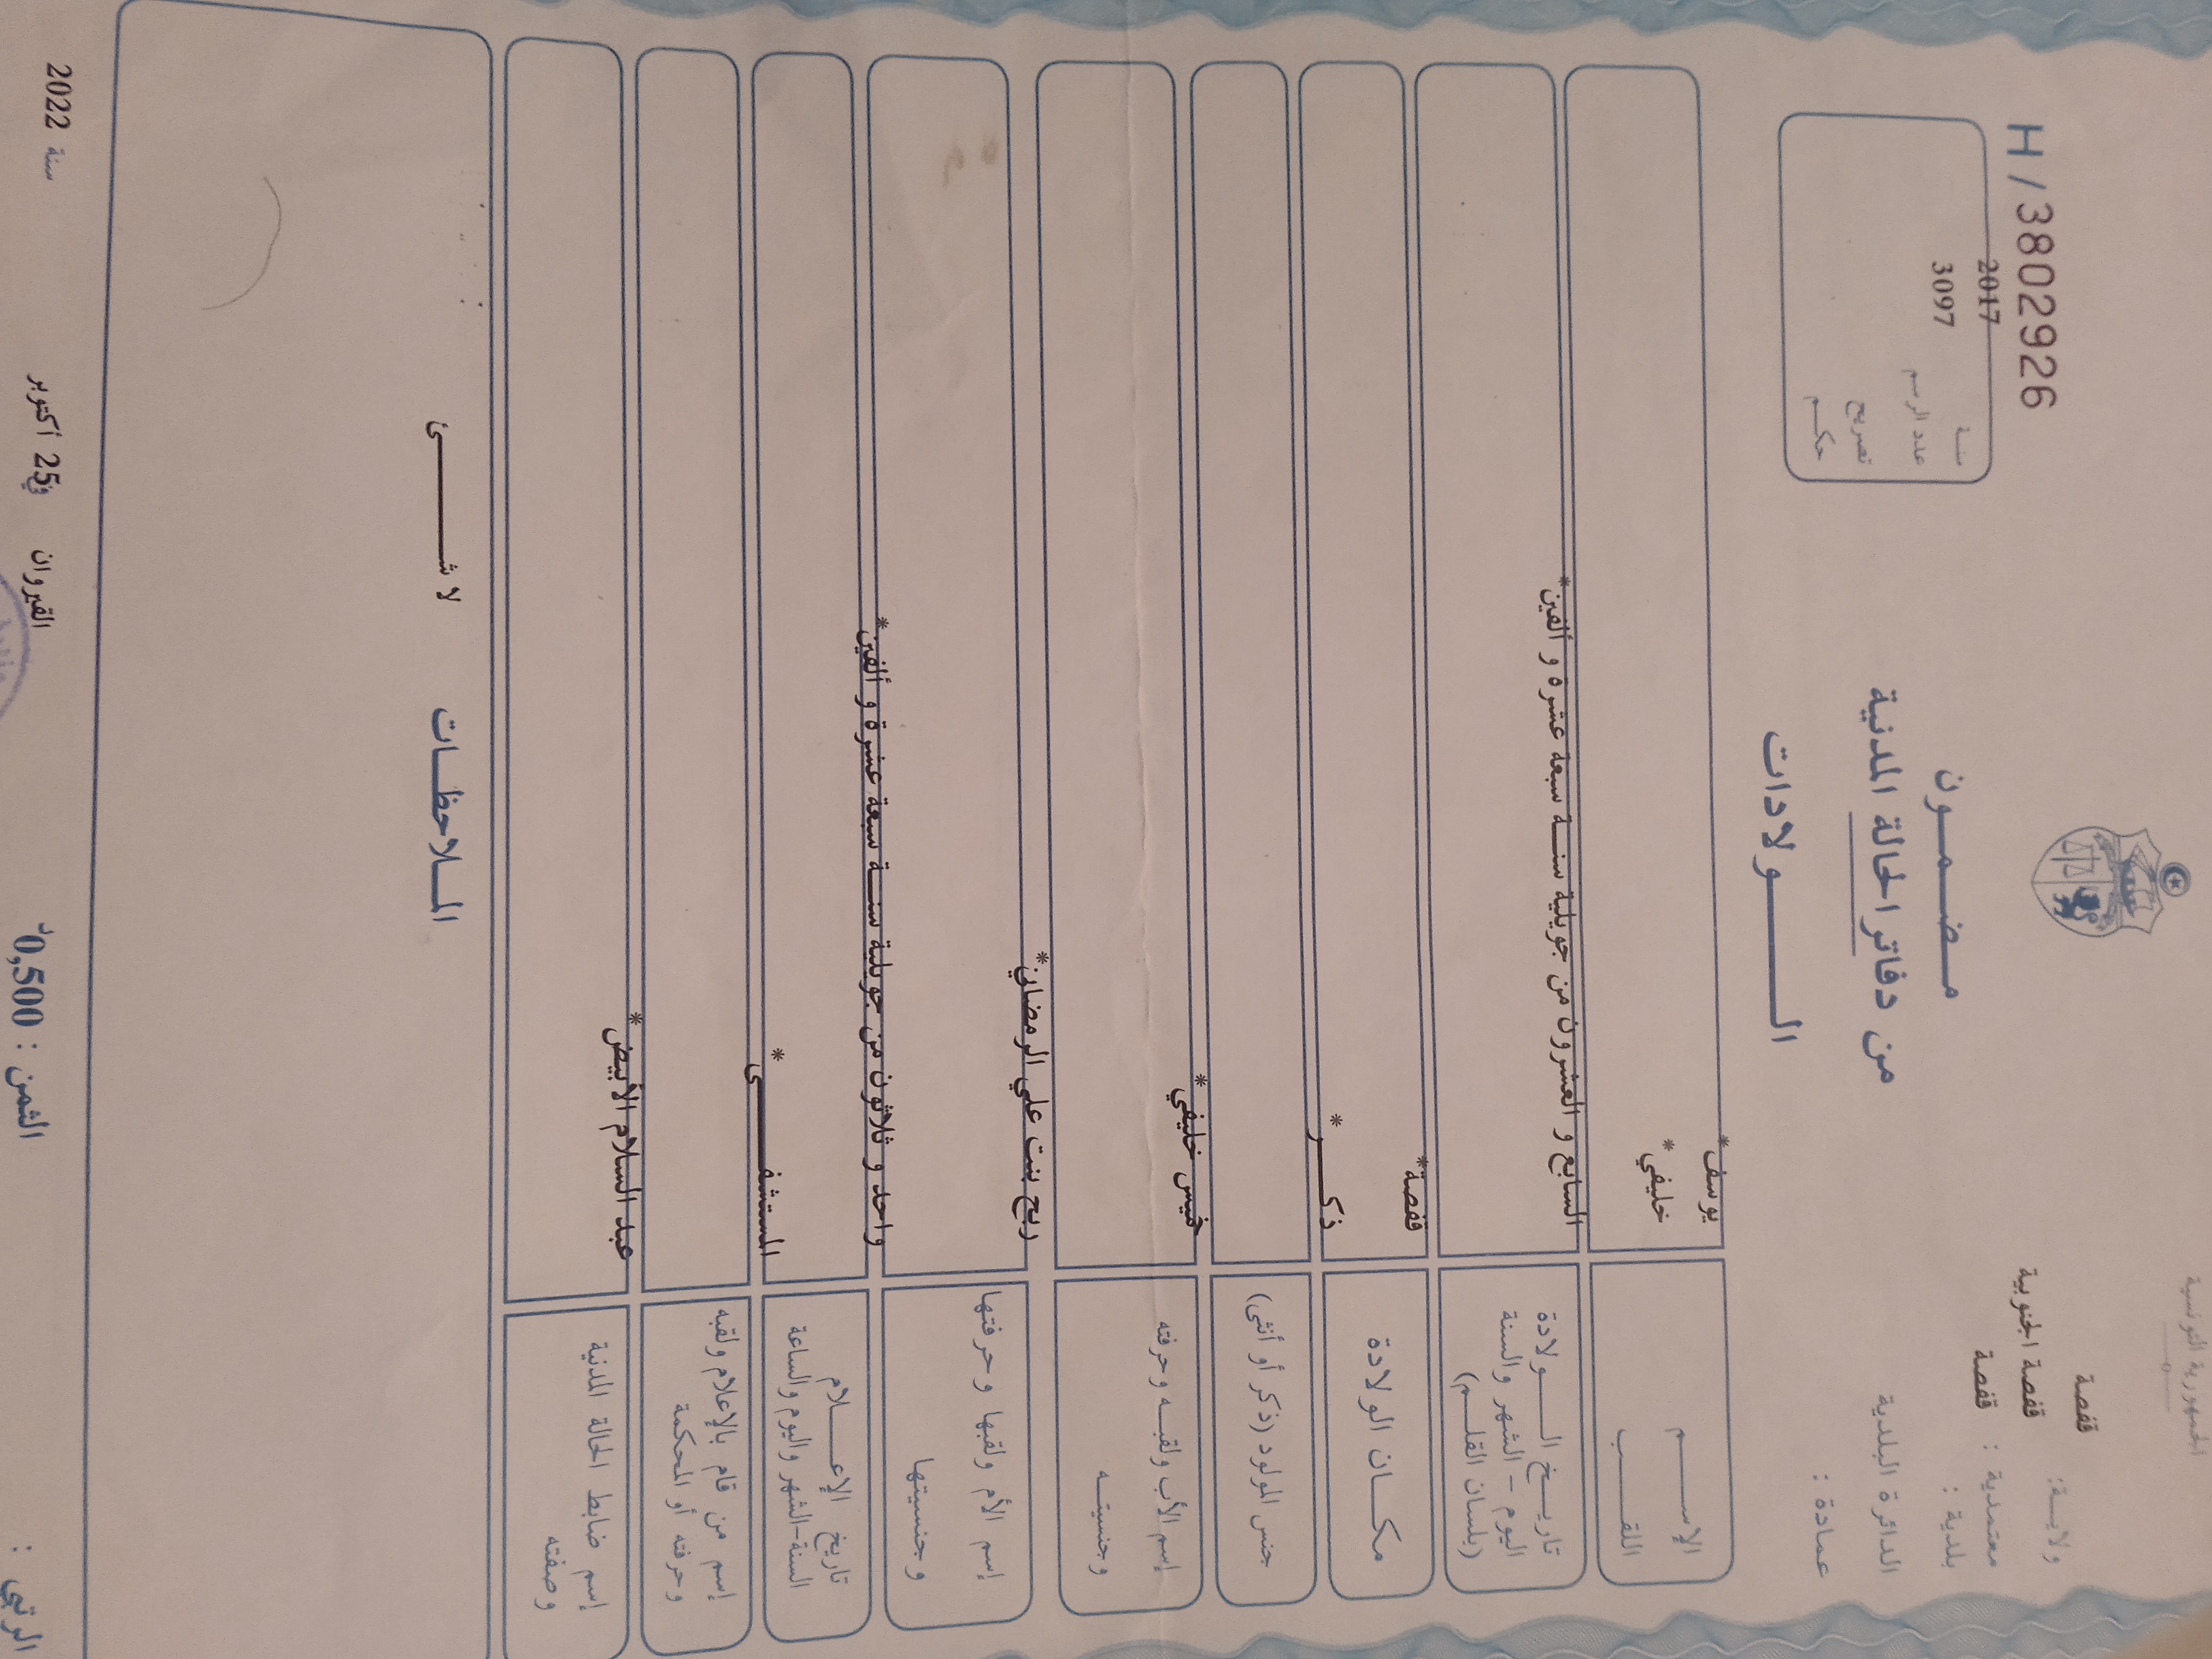 الجمهورية التونسية
ولايـــة: قفصة
معتمدية : قفصة الجنوبية
بلدية : قفصة
الدائرة البلدية
عمادة :
H / 3802926
سنـــة 2017
عدد الرسم 3097
تصريح
حكـــم
مـضـمـــون
من دفاتر الحالة المدنية
الـــــولادات
الإســـــم يوسف*
اللقـــــب خليفي *
تاريـــخ الــــولادة
اليوم – الشهر والسنة
(بلسان القلـــم)
السابع و العشرون من جويلية سنـــة سبعة عشرة و ألفين*
مكـــان الولادة قفصة*
جنس المولود (ذكر أو أنثى) ذكـــــر *
إسم الأب ولقبـــه وحرفته
وجنسيتـــه
خميس خليفي*
إسم الأم ولقبها وحرفتها
وجنسيتها
ربح بنت علي الرمضاني*
تاريخ الإعـــــلام
السنة-الشهر واليوم والساعة
واحد و ثلاثون من جويلية سنـــة سبعة عشرة و ألفين*
إسم من قام بالإعلام ولقبه
وحرفته أو المحكمة
المستشفـــــــى *
إسم ضابط الحالة المدنية
وصفته
عبد السلام الأبيض *
المــلاحظــات
لا شـــــــــئ
الرتبي : الثمن : 0,500د القيروان في25 أكتوبر سنة 2022